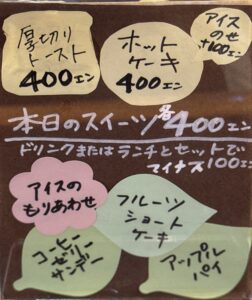 厚切り
トースト
400エン
ホット
ケーキ
400エン
アイス
のせ
+100エン
本日のスイーツ各400エン
ドリンクまたはランチとセットで
マイナス100エン
アイスの
もりあわせ
フルーツ
ショート
ケーキ
コーヒー
ゼリー
サンデー
アップル
パイ